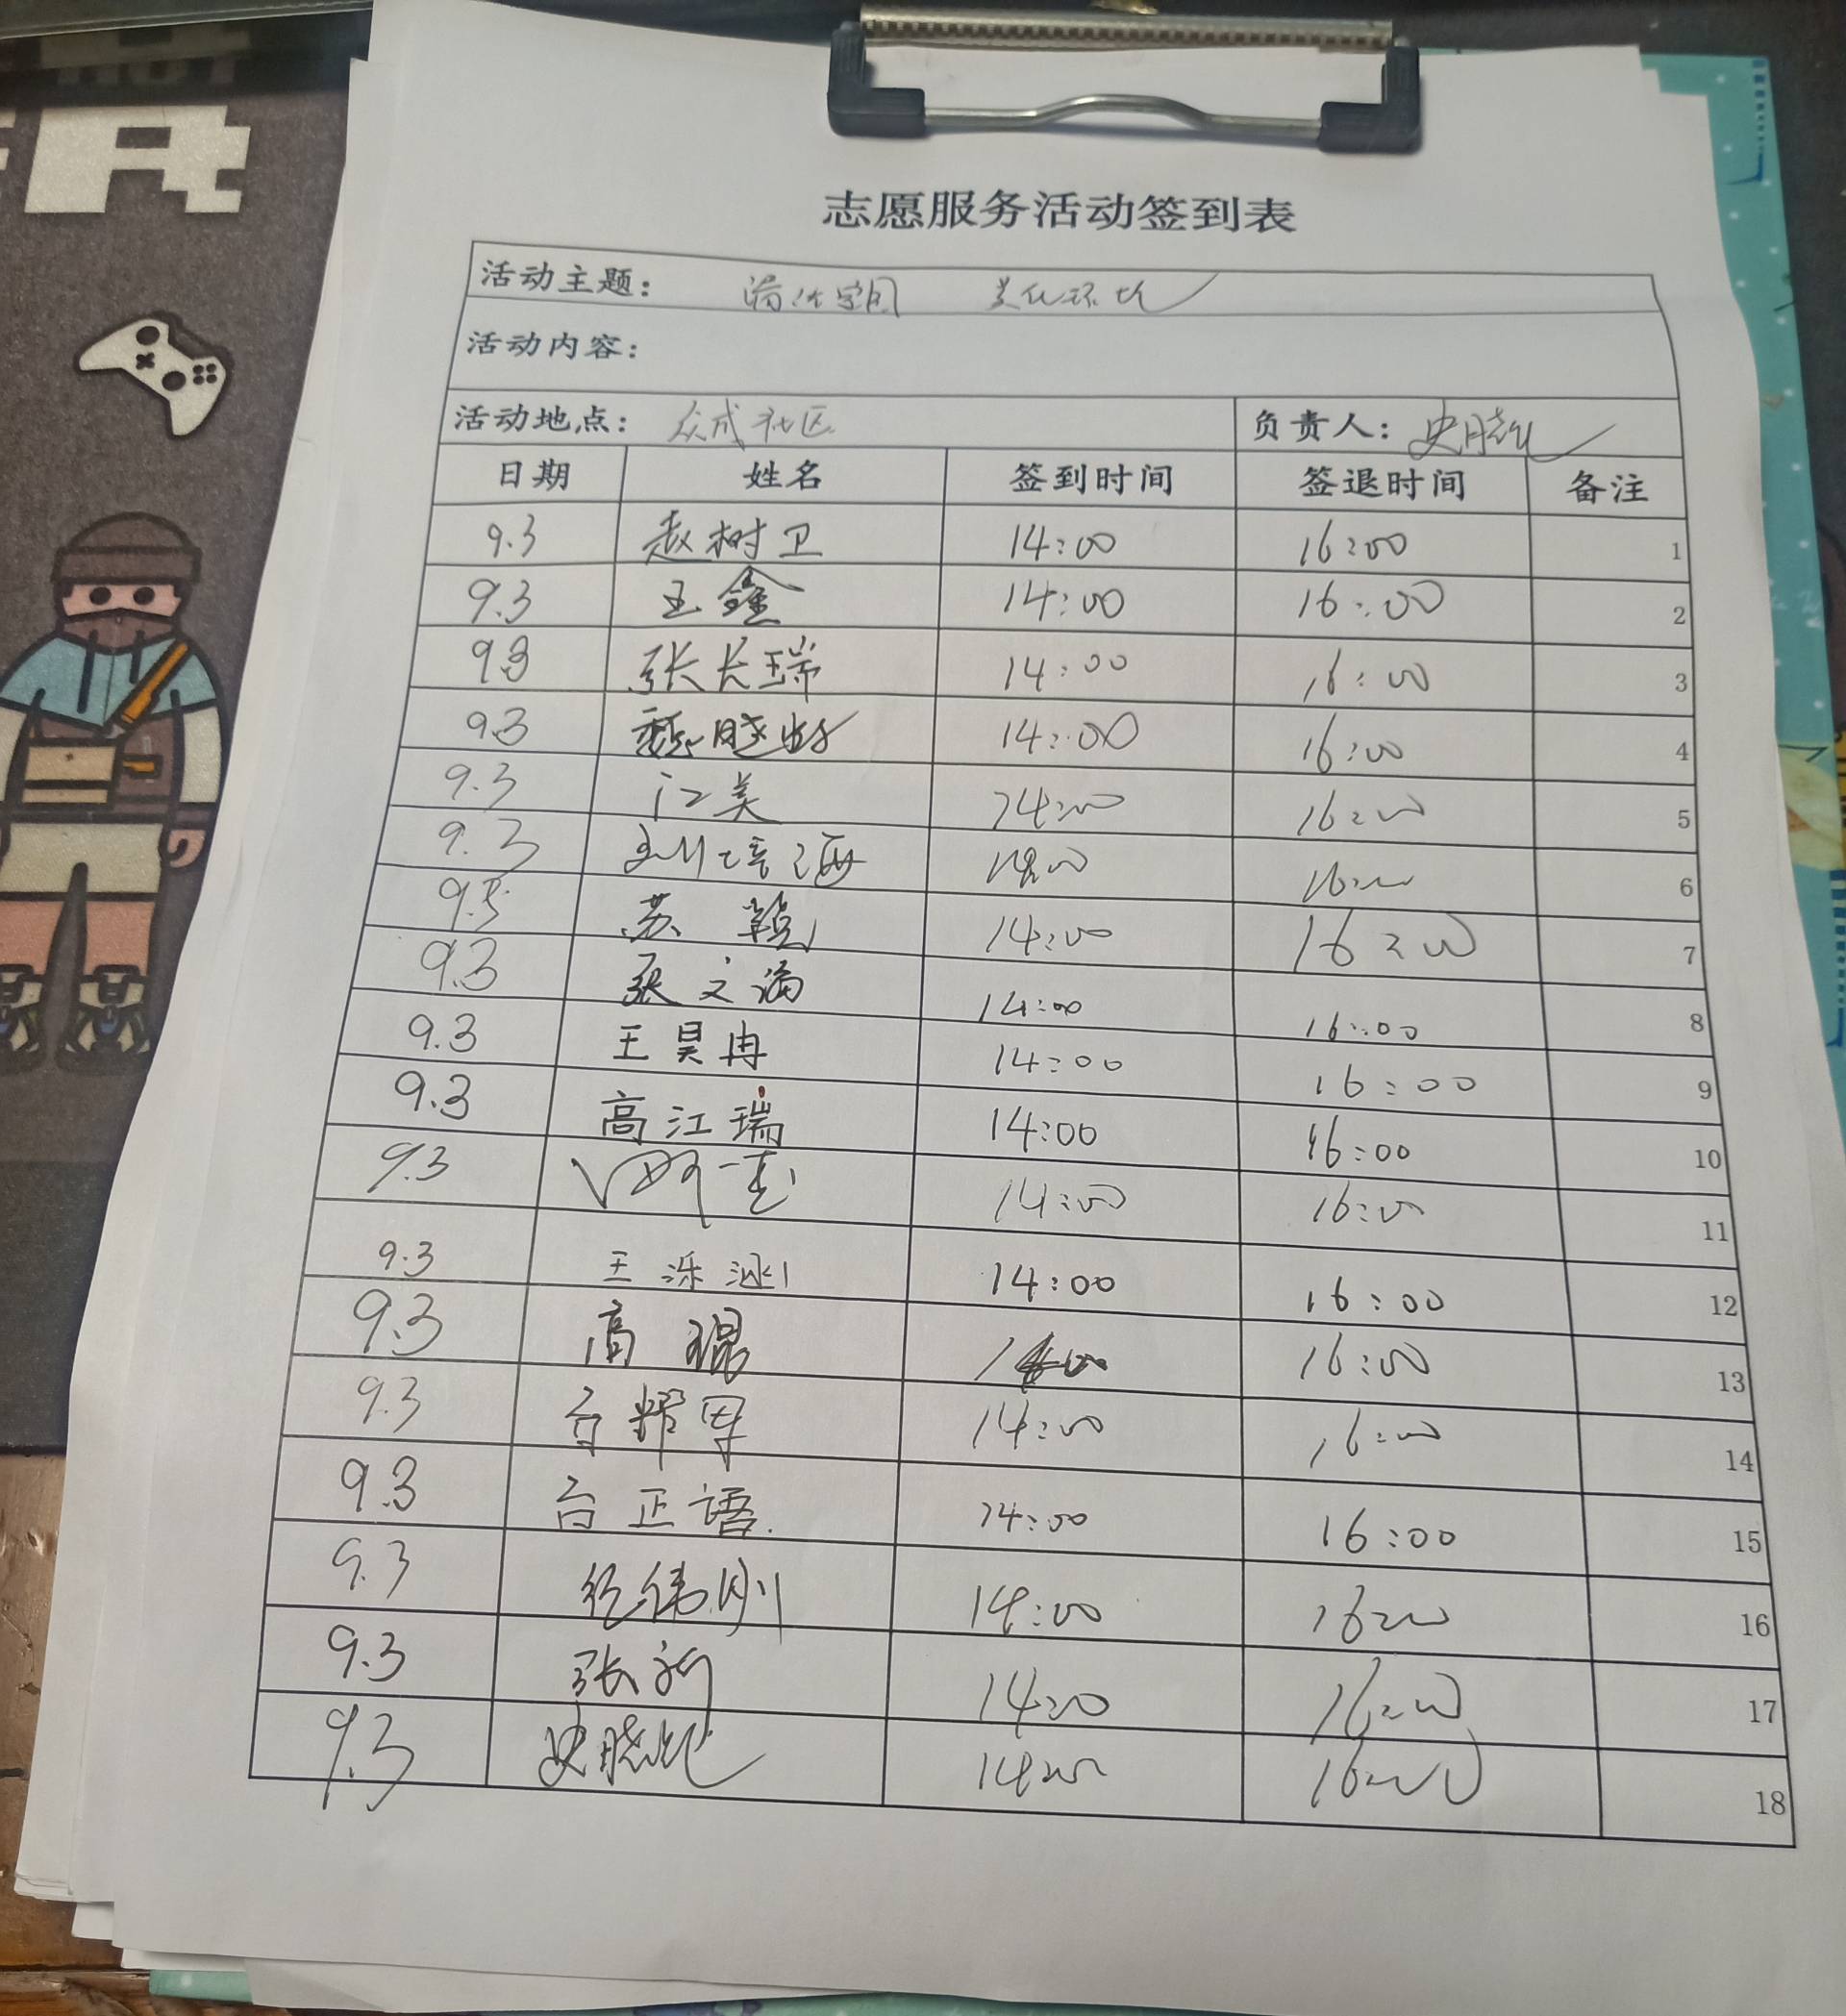 志愿服务活动签到表
活动主题： 美化环境
活动内容：
活动地点： 众成社区 负责人： 史晓
日期 姓名 签到时间 签退时间 备注
9.3 赵树卫 14:00 16:00 1
9.3 王鑫 14:00 16:00 2
9.3 张长瑞 14:00 16:00 3
9.3 魏晓 14:00 16:00 4
9.3 江美 14:00 16:00 5
9.3 刘培海 14:00 16:00 6
苏颖 14:00 16:00 7
9.3 张文海 14:00 16:00 8
9.3 王昊冉 14:00 16:00 9
9.3 高江瑞 14:00 16:00 10
9.3 14:00 16:00 11
9.3 王泺 14:00 16:00 12
9.3 高琨 16:00 13
9.3 14:00 16:00 14
9.3 台正语 14:00 16:00 15
9.3 伟刚 14:00 16:00 16
9.3 张新 14:00 16:00 17
9.3 史晓 14:00 16:00 18